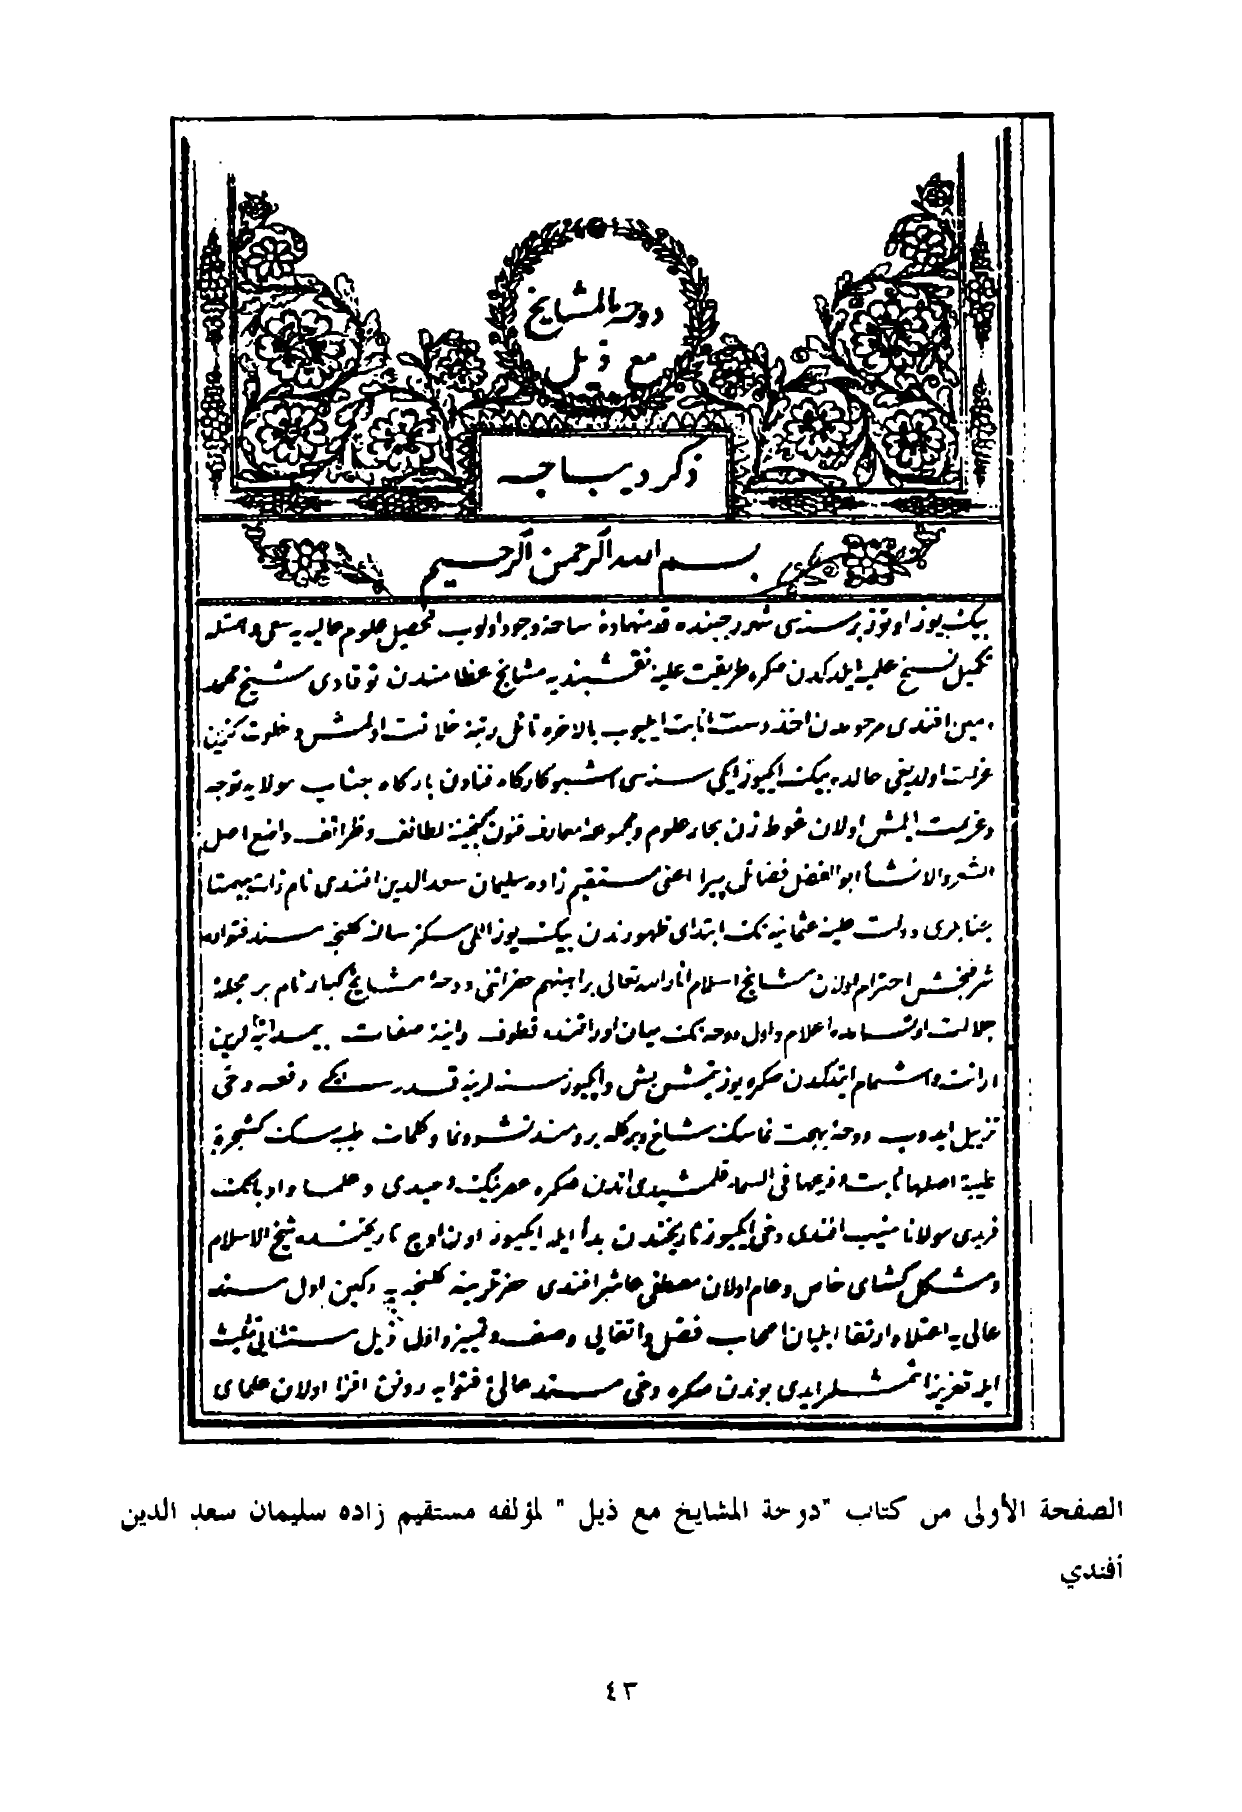 دوحة المشايخ
مع ذيل
ذكر ديباجه
بسم الله الرحمن الرحيم
بيك يوز اوتوز بر سنه‌سی شهر رجبنده قدمنهادهٔ ساحهٔ وجود اولوب تحصيل علوم عاليه يه سعی و همتله
تكميل نسخ علميه ايلدكدن صكره طريقت عليهٔ نقشبنديه مشايخ عظامندن توقادی شيخ محمد
امين افندی مرحومدن اخذ دست انابت ايليوب بالاخره نائل رتبهٔ خلافت اولمش و خلوت كزين
عزلت اولديغی حالده بيك ايكيوز ايكی سنه‌سی اشبو كاركاه فنادن باركاه جناب مولايه توجه
و عزيمت ايلمش اولان غوطه زن بحار علوم و مجموعهٔ معارف فنون كنجينهٔ لطائف و ظرائف واضع اصل
الشعر والانشا ابو الفضل فضائل پيرا اعنی مستقيم زاده سليمان سعد الدين افندی نام ذات بيهمتا
دولت عليهٔ عثمانيه نك ابتدای ظهورندن بيك يوز اللی سكز سالنه كلنجه مسند فتوايه
شرفبخش احترام اولان مشايخ اسلام انار الله تعالی براهينهم حضراتنی دوحهٔ مشايخ كبار نام بر مجلهٔ
جلالت اول دوحه نك ميان اوراقنده قطوف دانيهٔ صفات
ايتدكدن صكره يوز يتمش بش و ايكيوز سنه لرينه قدر ايكی دفعه دخی
تذييل ايدوب دوحهٔ بهجت نمانك شاخ و بركله برومند نشو و نما و كلمات طيبه سنك كشجرة
طيبة اصلها ثابت وفرعها فی السماء قلمشيدی اندن صكره عصرينك وحيدی و علما و ادبانك
فريدی مولانا منيب افندی دخی ايكيوز تاريخندن بدأ ايله ايكيوز اون اوچ تاريخنده شيخ الاسلام
و مشكل كشای خاص و عام اولان مصطفی عاشر افندی حضرتلرينه كلنجه يه دكين اول مسند
عالی يه اعتلا و ارتقا ايليان اصحاب فضل و اتقايی وصف و تمييز و اول ذيل مستثنايی تثليث
ايله تعزيز ايتمشلر ايدی بوندن صكره دخی مسند عالئ فتوايه رونق افزا اولان علمای
الصفحة الأولى من كتاب "دوحة المشايخ مع ذيل" لمؤلفه مستقيم زاده سليمان سعد الدين
أفندي
٤٣